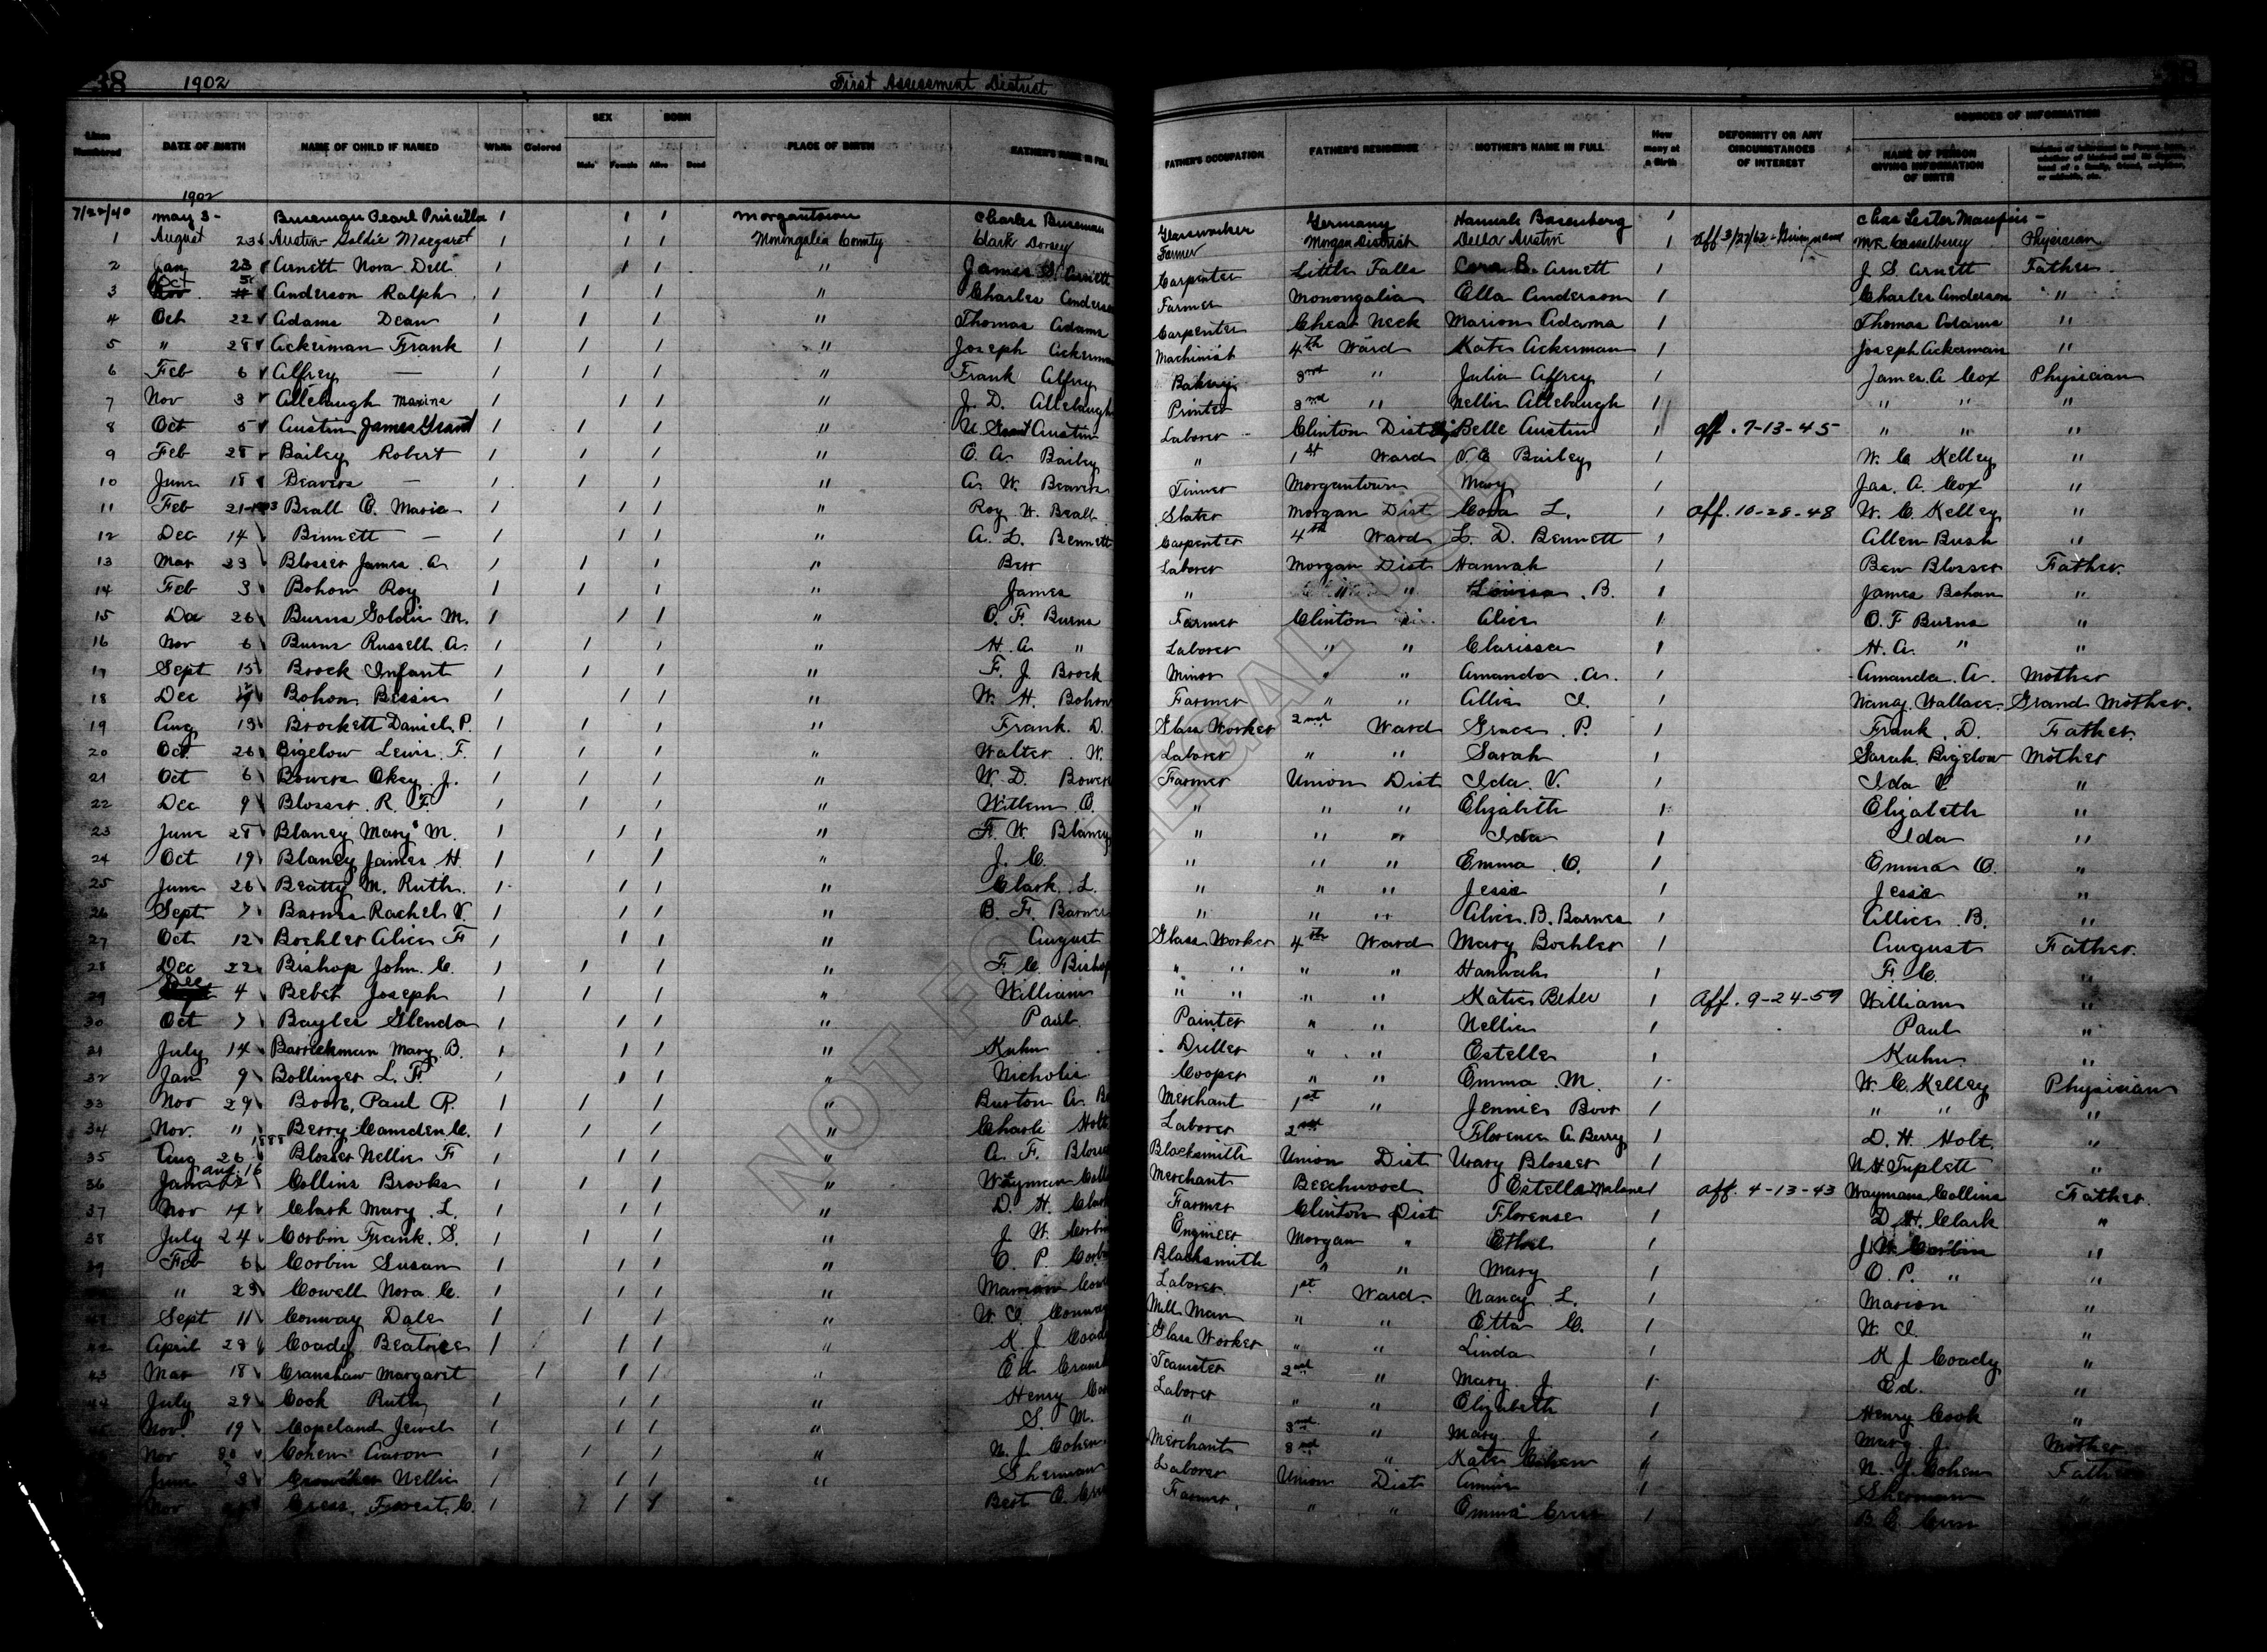 38 1902 First Assessment District 38
Lines Numbered DATE OF BIRTH NAME OF CHILD IF NAMED White Colored SEX Male Female BORN Alive Dead PLACE OF BIRTH FATHER'S NAME IN FULL FATHER'S OCCUPATION FATHER'S RESIDENCE MOTHER'S NAME IN FULL How many at a Birth DEFORMITY OR ANY CIRCUMSTANCES OF INTEREST SOURCES OF INFORMATION NAME OF PERSON GIVING INFORMATION OF BIRTH
1902
7/22/40 May 3 - Pearl Priscilla 1 1 1 Morgantown Charles Glassworker Germany Hannah 1 Chas Lester Maupin -
1 August 23 Austin Goldie Margaret 1 1 1 Monongalia County Clark Dorsey Farmer Morgan District Della Austin 1 aff 3/27/62 Physician
2 Jan 23 Arnett Nora Dell 1 1 1 " James S. Arnett Carpenter Little Falls Cora B. Arnett 1 J. S. Arnett Father
3 Oct 5 Anderson Ralph 1 1 1 " Charles Anderson Farmer Monongalia Ella Anderson 1 Charles Anderson "
4 Oct 22 Adams Dean 1 1 1 " Thomas Adams Carpenter Cheat Neck Marion Adams 1 Thomas Adams "
5 " 28 Ackerman Frank 1 1 1 " Joseph Ackerman Machinist 4th Ward Kate Ackerman 1 Joseph Ackerman "
6 Feb 6 Alfrey — 1 1 1 " Frank Alfrey Bakery 3rd " Julia Alfrey 1 James A Cox Physician
7 Nov 3 Allebaugh Maxine 1 1 1 " J. D. Allebaugh Printer 3rd " Nellie Allebaugh 1 " " "
8 Oct 5 Austin James Grant 1 1 1 " U Grant Austin Laborer Clinton Dist Belle Austin 1 aff. 7-13-45 " " "
9 Feb 28 Bailey Robert 1 1 1 " C. A. Bailey " 1st Ward V. C Bailey 1 W. C Kelley "
10 June 18 Beavers — 1 1 1 " A. W. Beavers Tinner Morgantown Mary 1 Jas. A. Cox "
11 Feb 21-1903 Beall C. Marie 1 1 1 " Roy W. Beall Slater Morgan Dist Cora L. 1 aff. 10-28-48 W. C. Kelley "
12 Dec 14 Bennett — 1 1 1 " A. L. Bennett Carpenter 4th Ward L. D. Bennett 1 Allen Bush "
13 Mar 23 Blosser James. A 1 1 1 " Ben Laborer Morgan Dist Hannah 1 Ben Blosser Father.
14 Feb 3 Bohon Roy 1 1 1 " James " " " Louisa. B. 1 James Bohan "
15 Dec 26 Burns Goldie M. 1 1 1 " O. F. Burns Farmer Clinton Alice 1 O. F Burns "
16 Nov 6 Burns Russell A. 1 1 1 " H. A " Laborer " " Clarissa 1 H. A. " "
17 Sept 15 Brock Infant 1 1 1 " F. J. Brock Minor " " Amanda. A. 1 Amanda. A. Mother
18 Dec Bohon Bessie 1 1 1 " W. H. Bohon Farmer " " Allie 1 Nancy Wallace Grand Mother.
19 Aug 13 Brockett Daniel. P. 1 1 1 " Frank. D. Glass Worker 2nd Ward Grace. P. 1 Frank. D. Father.
20 Oct 26 Bigelow Lewis. F. 1 1 1 " Walter. W. Laborer " " Sarah 1 Sarah Bigelow Mother
21 Oct 6 Bowers Okey. J. 1 1 1 " W. D. Bowers Farmer Union Dist Ida. V. 1 Ida V "
22 Dec 9 Blosser. R. F. 1 1 1 " Willem O. " " " Elizabeth 1 Elizabeth "
23 June 28 Blaney Mary M. 1 1 1 " F. W. Blaney " " " Ida 1 Ida "
24 Oct 19 Blaney James. H. 1 1 1 " J. C. " " " Emma. O. 1 Emma O. "
25 June 26 Beatty M. Ruth. 1 1 1 " Clark. L. " " " Jessie 1 Jessie "
26 Sept 7 Barnes Rachel V. 1 1 1 " B. F. Barnes " " " Alice. B. Barnes 1 Allice. B. "
27 Oct 12 Boehler Alice F 1 1 1 " August Glass Worker 4th Ward Mary Boehler 1 August Father.
28 Dec 22 Bishop John. C. 1 1 1 " F. C. Bishop " " " " Hannah 1 F. C. "
29 Dec 4 Beber Joseph 1 1 1 " William " " " " Katie Beber 1 Aff. 9-24-59 William "
30 Oct 7 Bayles Glenda 1 1 1 " Paul Painter " " Nellie 1 Paul "
31 July 14 Barrickman Mary B. 1 1 1 " Kuhn Driller " " Estelle 1 Kuhn "
32 Jan 9 Bollinger L. F. 1 1 1 " Nicholis Cooper " " Emma. M. 1 W. C. Kelley Physician
33 Nov 29 Boor, Paul R. 1 1 1 " Burton A. Merchant 1st " Jennie Boor 1 " " "
34 Nov. " Berry Camden C. 1 1 1 " Charli Holt Laborer 2nd Florence A Berry 1 D. H. Holt. "
35 Aug 26 1888 Blosser Nellie F 1 1 1 " A. F. Blosser Blacksmith Union Dist Urary Blosser 1 Triplett "
36 Aug. 16 Collins Brooks 1 1 1 " Merchant Beechwood Estella 1 aff. 4-13-43 Waymans Collins Father.
37 Nov 14 Clark Mary. L. 1 1 1 " D. H. Clark Farmer Clinton Dist Florense 1 D. H. Clark "
38 July 24 Corbin Frank. S. 1 1 1 " J. W. Corbin Engineer Morgan " Ethel 1 J. W. Corbin "
39 Feb 6 Corbin Susan 1 1 1 " O. P. Corbin Blacksmith " " Mary 1 O. P. " "
" 23 Cowell Nora. C. 1 1 1 " Marion Laborer 1st Ward. Nancy L. 1 Marion "
Sept 11 Conway Dale 1 1 1 " Conway Mill Man " " Etta C. 1 "
42 April 28 Coady Beatrice 1 1 1 " K J Coady Glass Worker " " Linda 1 K J Coady "
43 Mar 18 Cranshaw Margaret 1 1 1 " Ed Teamster 2nd " Mary. J 1 Ed. "
44 July 29 Cook Ruth 1 1 1 " Henry Laborer " " Elizabeth 1 Henry Cook "
Nov. 19 Copeland Jewel 1 1 1 " S. M. " 3rd " Mary J 1 Mary. J. Mother
Nov 30 Cohen Aaron 1 1 1 " N. J. Cohen Merchant 3rd " Kate Cohen 1 N. J. Cohen Father
June 3 Nellie 1 1 1 " Sherman Laborer Union Dist Annie 1 Sherman
Nov Cress, Forrest. C. 1 1 1 Bert C Farmer. " " Emma Cress 1
NOT FOR LEGAL USE